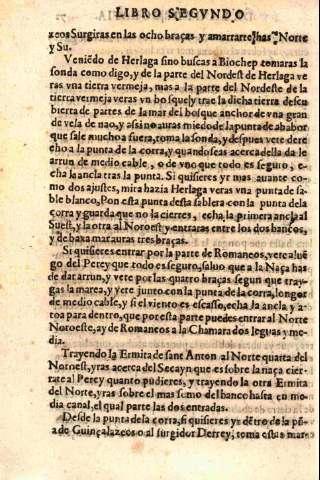 LIBRO SEGVNDO
zeos Surgiras en las ocho braças y amarrarte has Norte
y Su.
Veniẽdo de Herlaga sino buscas a Biochep tomaras la
sonda como digo, y de la parte del Nordest de Herlaga ve
ras vna tierra vermeja, mas a la parte del Nordeste de la
tierra vermeja veras vn bosque ly trae la dicha tierra descu
bierta de partes de la mar del bosque anchor de vna gran
de vela de nao, y asi no auras miedo de la punta de ababor
que sale mucho a fuera, toma la sonda, y despues vete dere
cho a la punta de la corra, y quando seas acerca della da le
arrun de medio cable, o de vno que todo es seguro, e-
cha la ancla tras la punta. Si quisieres yr mas auante co-
mo dos ajustes, mira hazia Herlaga veras vna punta de sa-
ble blanco, Pon esta punta desta sablera con la punta dela
corra y guarda que no la cierres, echa la primera ancla al
Suest, y la otra al Noroest y entraras entre los dos bancos,
y de baxa mar auras tres braças.
Si quisieres entrar por la parte de Romaneos, vete a lue
go del Percy que todo es seguro, saluo que a la Naça has
de dat arrun, y vete por las quatro braças segun que tray-
gas la marea, y vete junto con la punta de la corra, longor
de medio cable, y si el viento es escasso, echa la ancla y a-
toa para dentro, que por esta parte puedes entrar al Norte
Noroeste, ay de Romaneos a la Chamara dos leguas y me-
dia.
Trayendo la Ermita de sant Anton al Norte quarta del
Noroest, yras acerca del Secayn que es sobre la naça cier-
rate al Percy quanto pudieres, y trayendo la otra Ermita
del Norte, yras sobre el mas somo del banco hasta en me-
dia canal, el qual parte las dos entradas.
Desde la punta de la corra, si quisieres yr dẽtro de la pũ-
a de Guincalazeos o al surgidor Derrey, toma estas mar-